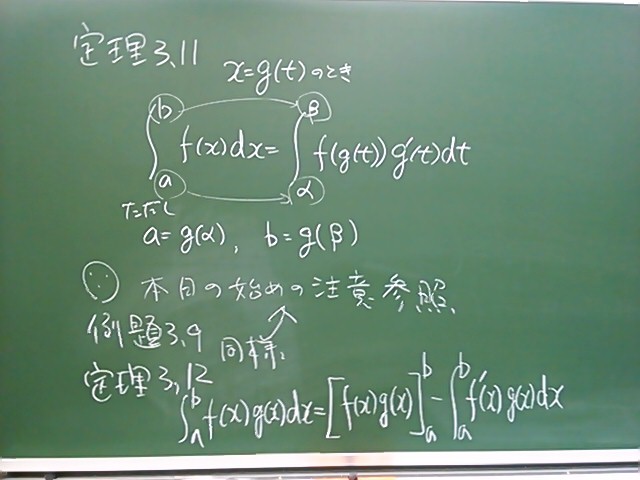 定理3.11
x=g(t)のとき
∫_a^b f(x)dx = ∫_α^β f(g(t))g'(t)dt
ただし
a=g(α), b=g(β)
∵ 本日の始めの注意参照
例題3.9 同様
定理3.12
∫_a^b f(x)g(x)dx=[f(x)g(x)]_a^b - ∫_a^b f'(x)g(x)dx